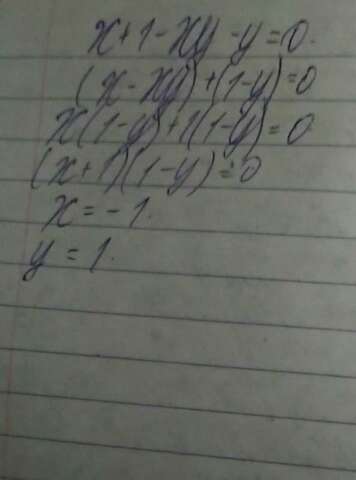 x+1-xy-y=0.
(x-xy)+(1-y)=0
x(1-y)+1(1-y)=0
(x+1)(1-y)=0
x=-1.
y=1.